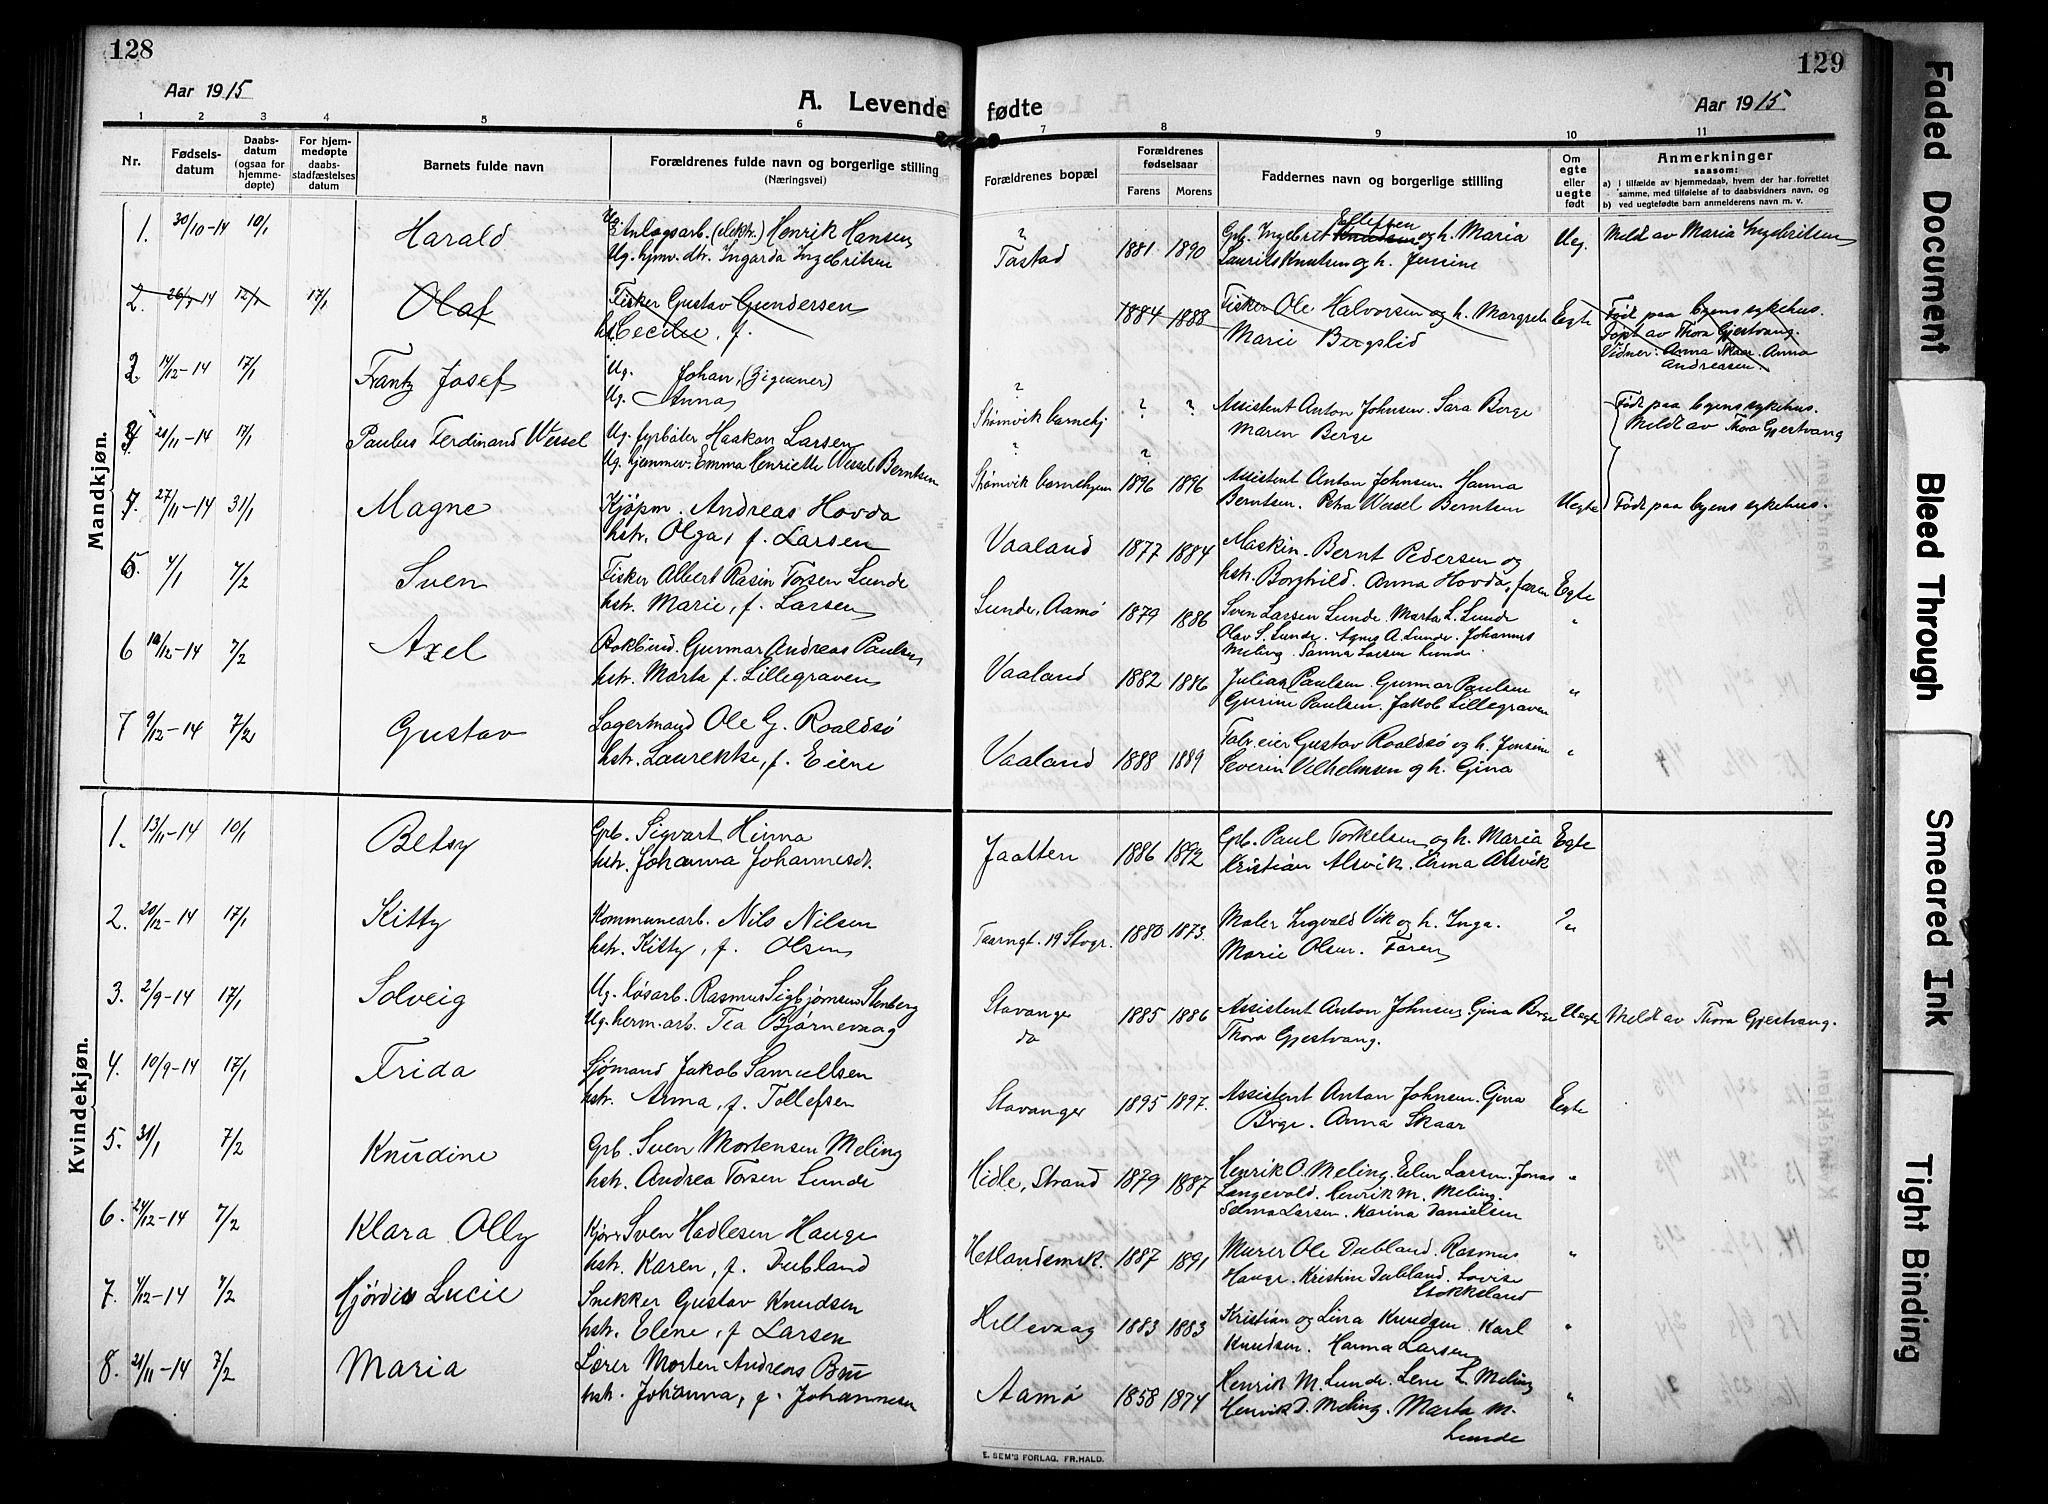 128
Aar 1915
A. Levende
1 2 3 4 5 6
Nr. Fødselsdatum Daabsdatum (ogsaa for hjemmedøpte) For hjemmedøpte daabsstadfæstelses datum Barnets fulde navn Forældrenes fulde navn og borgerlige stilling (Næringsvei)
Mandkjøn.
1. 30/10-14 10/1 Harald Ug. Anlægsarb. (elektr.) Henrik Hansen
Ug. hjmv. dtr. Ingarda Ingebritsen
2. 26/ 14 12/1 17/1 Olaf Fisker Gustav Gundersen
h. Cecilie, f.
2 14/12-14 17/1 Frantz Josef Ug. Johan, (Zigeuner)
Ug. Anna
3 20/11-14 17/1 Paulus Ferdinand Wessel Ug. fyrbøter Haakon Larsen
Ug. hjemmev. Emma Henriette Wessel Berntsen
4. 27/11-14 31/1 Magne Kjøpm. Andreas Hovda
hstr. Olga, f. Larsen
5. 4/1 7/2 Sven Fisker Albert Rasin Torsen Lunde
hstr. Marie, f. Larsen
6 10/12-14 7/2 Axel Bokbind. Gunnar Andreas Paulsen
hstr. Marta f. Lillegraven
7 9/12-14 7/2 Gustav Lagermand Ole G. Roaldsø
hstr. Laurekke, f. Eiene
Kvindekjøn.
1. 13/11-14 10/1 Betsy Grb. Sigvart Hinna
hstr. Johanna Johannesdt.
2. 20/12-14 17/1 Kitty Kommunearb. Nils Nilsen
hstr. Kitty, f. Olsen
3. 2/9-14 17/1 Solveig Ug. løsarb. Rasmus Sigbjørnsen Stenberg
Ug. herm.arb. Tea Bjørnevaag
4. 10/9-14 17/1 Frida Sjømand Jakob Samuelsen
hstr. Anna, f. Tollefsen
5. 31/1 7/2 Knudine Grb. Sven Mortensen Meling
hstr. Andrea Torsen Lunde
6. 24/12-14 7/2 Klara Olly Kjører Sven Hadlesen Hauge
hstr. Karen, f. Dubland
7. 4/12-14 7/2 Hjørdis Lucie Snekker Gustav Knudsen
hstr. Elene, f Larsen
8. 21/11-14 7/2 Maria Lærer Morten Andreas Bru
hstr. Johanna, f. Johannesen
129
Aar 1915
fødte
7 8 9 10 11
Forældrenes bopæl Forældrenes fødselsaar Farens Morens Faddernes navn og borgerlige stilling Om egte eller uegte født Anmerkninger
saasom:
a) i tilfælde av hjemmedaab, hvem der har forrettet
samme, med tilføielse af to daabsvidners navn, og
b) ved uegtefødte barn anmelderens navn m. v.
?
Tastad 1881 1890 Grb. Ingebrit Knudsen Tollefsen og h. Maria
Laurits Knutsen og h. Jensine Ueg. Meldt av Maria Ingebritsen
1884 1888 Fisker Ole Halvorsen og h. Margrete
Marie Bergslid Egte Født paa byens sykehus.
Døpt av Thora Gjestvang.
Vidner: Anna Skaar. Anna
Andreasen.
?
Strømvik barnehj ? ? Assistent Anton Johnsen. Sara Berge
Maren Berge Født paa byens sykehus.
Meldt av Thora Gjestvang
?
Strømvik barnehjem ? 1896 1896 Assistent Anton Johnsen. Hanna
Berntsen. Petra Wessel Berntsen Uegte Født paa byens sykehus.
Vaaland 1877 1884 Maskin. Bernt Pedersen og
hstr. Borghild. Anna Hovda, faren Egte
Lunde, Aamø 1879 1886 Sven Larsen Lunde. Marta L. Lunde
Olav S. Lunde. Agnes A. Lunde. Johannes
Meling. Sanna Larsen Lunde. "
Vaaland 1882 1886 Julian Paulsen. Gunnar Paulsen
Gurine Paulsen. Jakob Lillegraven "
Vaaland 1888 1889 Fabr.eier Gustav Roaldsø og h. Jensine
Severin Vilhelmsen og h. Gina "
Jaatten 1886 1892 Grb. Paul Torkelsen og h. Maria
Kristian Alsvik. Anna Alsvik Egte
Taarngt. 19 Stvgr. 1880 1873. Maler Ingvald Vik og h. Inga.
Marie Olsen. Faren ? "
Stavanger
do 1885 1886 Assistent Anton Johnsen Gina Berge
Thora Gjestvang. Uegte Meldt av Thora Gjestvang.
Stavanger 1895 1897. Assistent Anton Johnsen. Gina
Berge. Anna Skaar Egte
Hidle, Strand 1879 1887 Henrik O. Meling. Elen Larsen. Jonas
Langevold. Henrik M. Meling.
Selma Larsen. Karina Danielsen "
Hetlandsmk. 1887 1891 Murer Ole Dubland. Rasmus
Hauge. Kristine Dubland. Lovise
Stokkeland "
Hillevaag 1883 1883 Kristian og Lina Knudsen. Karl
Knudsen. Hanna Larsen "
Aamø 1858 1874 Henrik M. Lunde. Lene L. Meling
Henrik D. Meling. Marta M.
Lunde "
E. SEM'S FORLAG, FR.HALD.
Faded Document
Bleed Through
Smeared Ink
Tight Binding